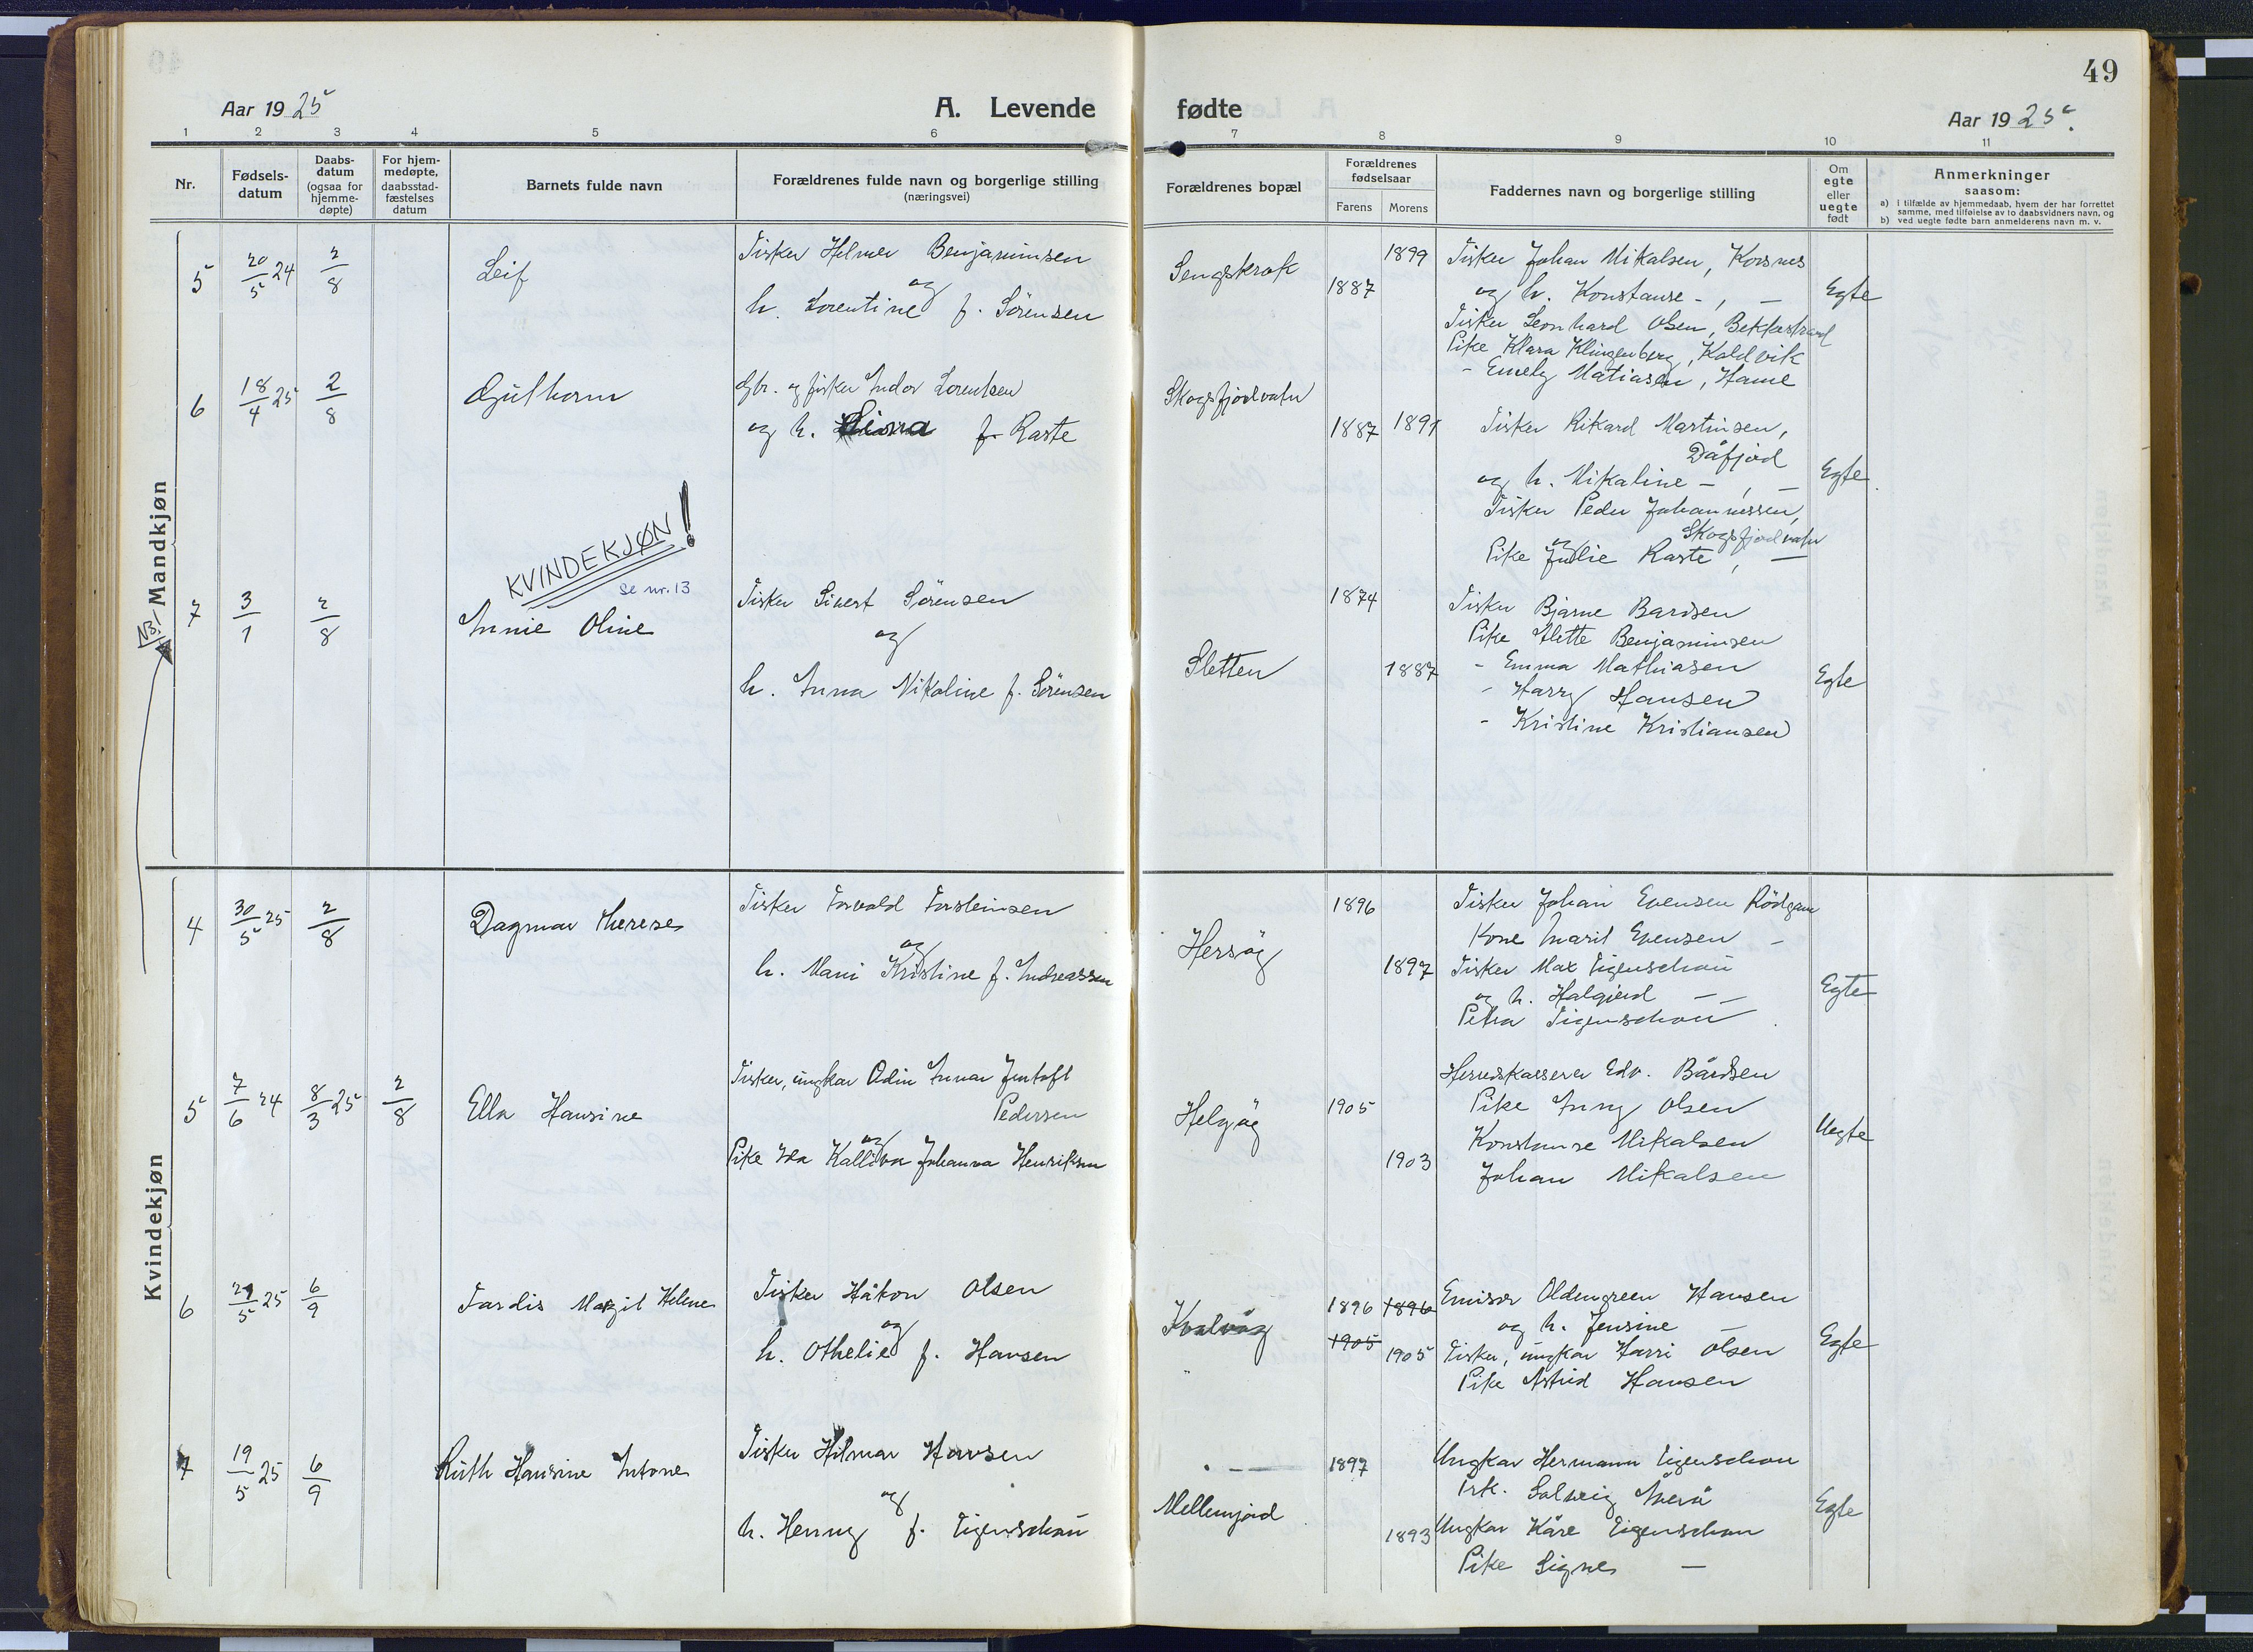 49
Aar 1925
A. Levende fødte
Aar 1925.
1 2 3 4 5 6 7 8 9 10 11
Nr.
Fødsels-
datum
Daabs-
datum
(ogsaa for
hjemme-
døpte)
For hjem-
medøpte,
daabsstad-
fæstelses
datum
Barnets fulde navn
Forældrenes fulde navn og borgerlige stilling
(næringsvei)
Forældrenes bopæl
Forældrenes
fødselsaar
Farens Morens
Faddernes navn og borgerlige stilling
Om
egte
eller
uegte
født
Anmerkninger
saasom:
a) i tilfælde av hjemmedaab, hvem der har forrettet
samme, med tilføielse av to daabsvidners navn, og
b) ved uegte fødte barn anmelderens navn m. v.
Mandkjøn
NB!
5 20/5 24 2/8 Leif
Fisker Helmer Benjaminsen
og
h. Lorentine f. Sørensen
Sengskrok
1887 1899
Fisker Johan Mikalsen, Korsnes
og h. Konstanse -, -
Fisker Leonhard Olsen, Bekkestrand
Pike Klara Klingenberg, Kaldvik
- Emely Matiasen, Hame
Egte
6 18/4 25 2/8 Guthorm
Gbr. og fisker Indor Lorentsen
og h. f. Raste
Skogsfjordvatn
1887 1891
Fisker Rikard Martinsen,
Dåfjord
og h. Mikaline -, -
Fisker Peder Johannessen,
Skogsfjordvatn
og
Pike Julie Raste, -
Egte
KVINDEKJØN!
se nr. 13
7 3/1 2/8 Annie Oline
Fisker Sivert Sørensen
og
h. Anna Nikoline f. Sørensen
Sletten
1874 1887
Fisker Bjarne Bardsen
Pike Alette Benjaminsen
- Emma Mathiasen
- Harry Hansen
- Kristine Kristiansen
Egte
Kvindekjøn
4 30/5 25 2/8 Dagmar Therese
Fisker Torvald Torsteinsen
og
h. Marie Kristine f. Andreassen
Hersøg
1896 1897
Fisker Johan Evensen Rödgam
Kone Marit Evensen -
Fisker Max Figenschau
og h. Halgjerd - -
Petra Figenschou
Egte
5 7/6 24 8/3 25 2/8 Ella Hansine
Fisker, ungkar Odin Annar Jentoft
Pedersen
og
Pike Ida Johanna Henriksen
Helgøg
1905 1903
Herredskasserer Edv. Bårdsen
Pike Anny Olsen
Konstanse Mikalsen
Johan Mikalsen
Uegte
6 29/5 25 6/9 Tordis Margit Helene
Fisker Håkon Olsen
og
h. Othelie f. Hansen
Kvalvåg
1896 1896
1905 1905
Emisær Oldengreen Hansen
og h. Jensine -
Fisker, ungkar Harri Olsen
Pike Astrid Hansen
Egte
7 19/5 25 6/9 Ruth Hansine Antone
Fisker Hilmar Hansen
og
h. Henny f. Figenschau
Mellemjord
1897 1893
Ungkar Hermann Figenschou
Frk. Solveig
Ungkar Kåre Figenschou
Pike Signe -
Egte